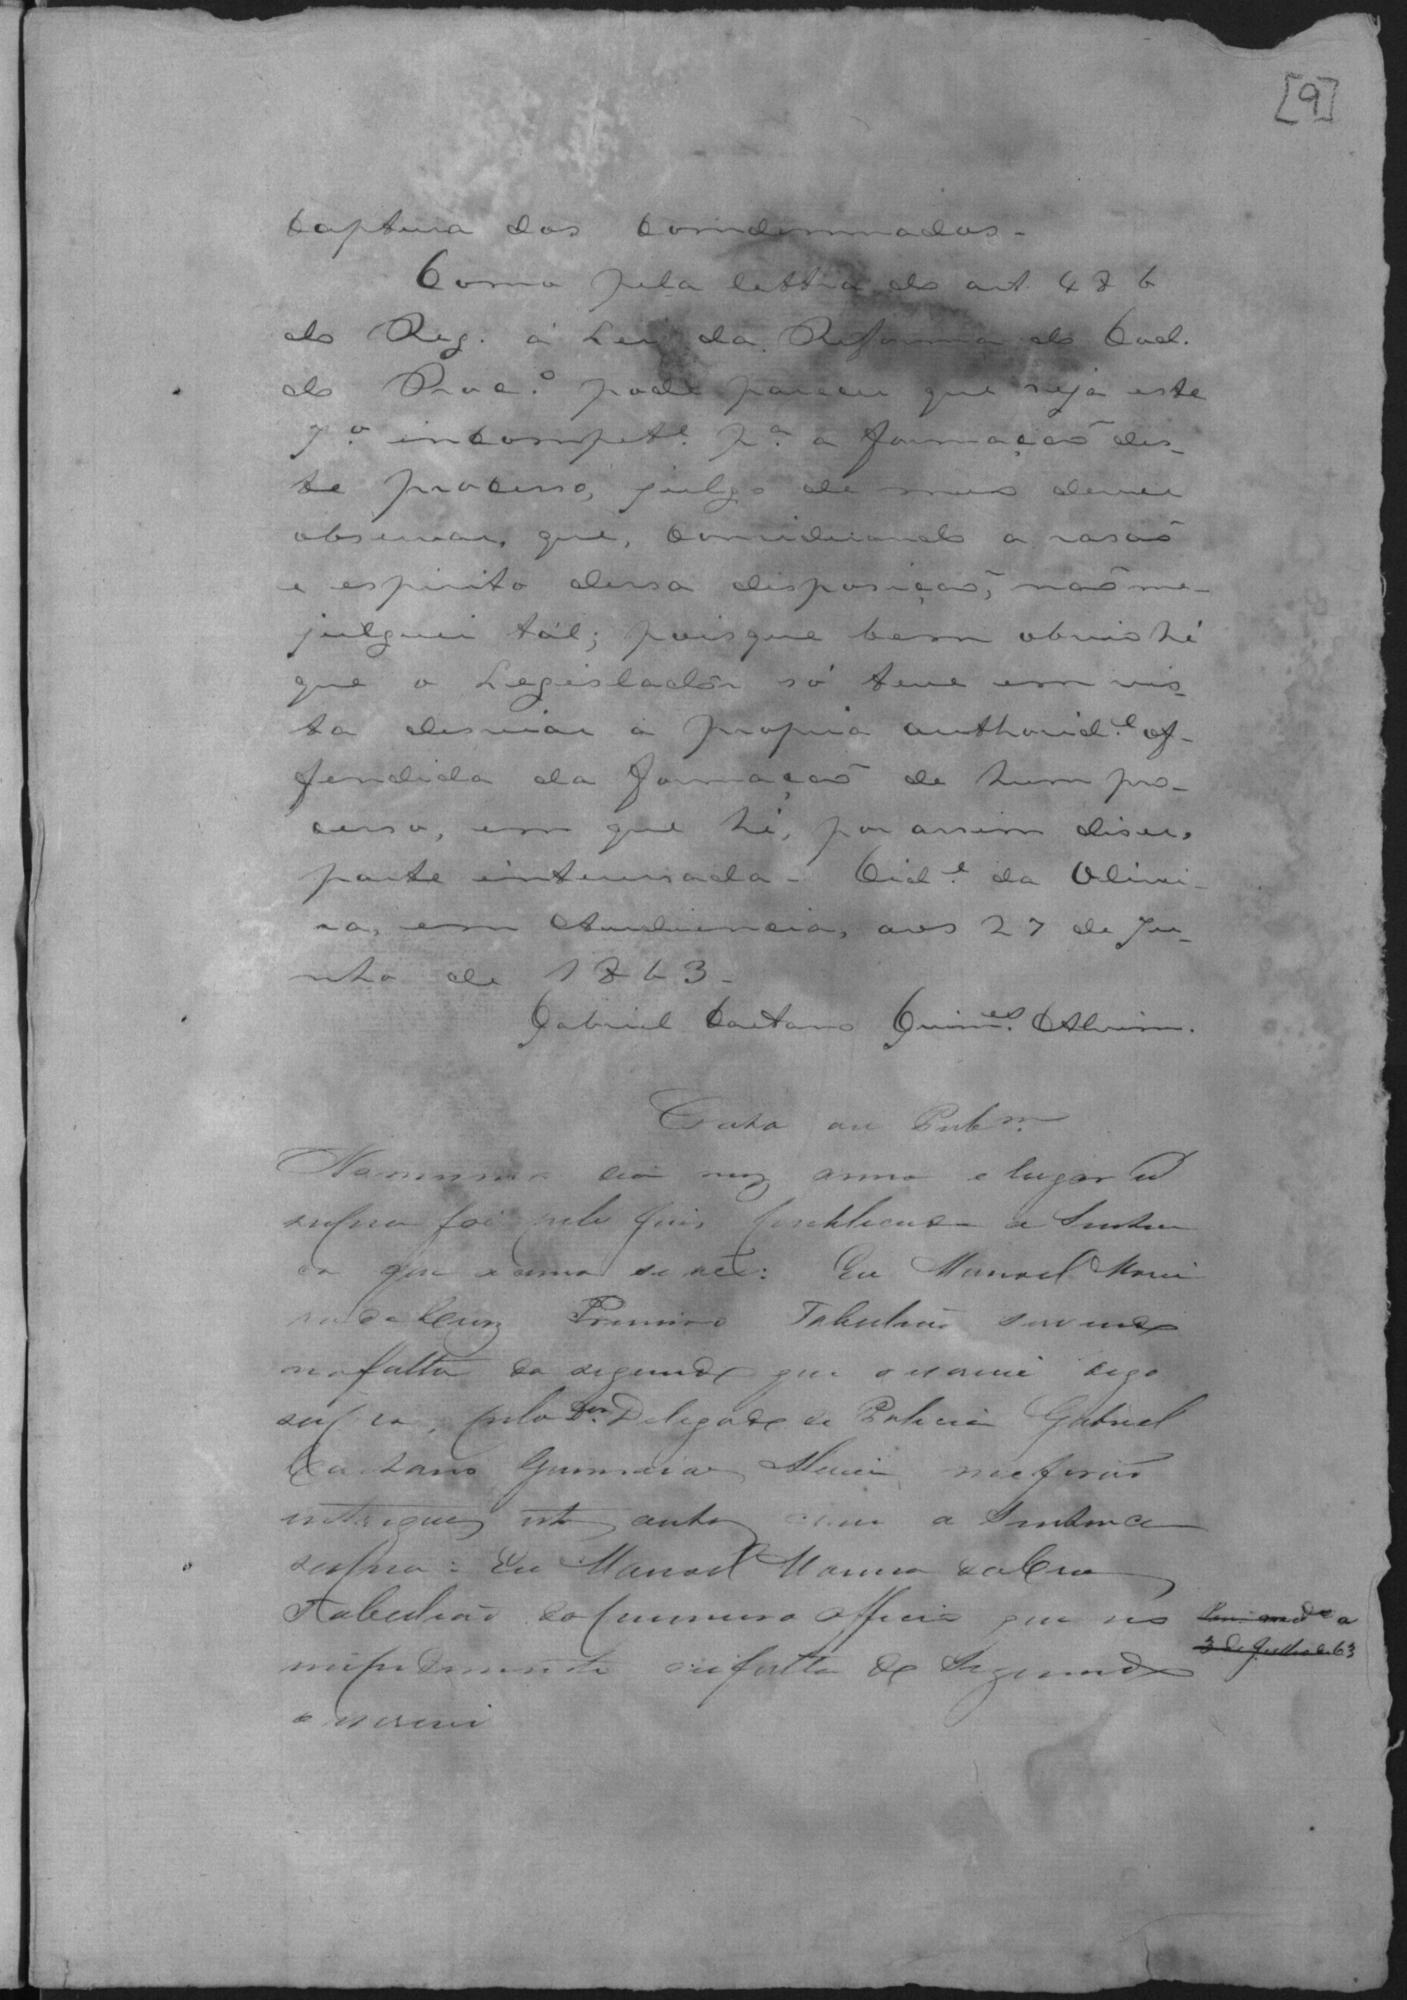 [9]
Captura dos Condemnados.
Como pela lettra do art. 486
do Reg. á Lei da Reforma do Cod.
do Proc.º pode parecer que seja este
J.º incompet.e p.a a formação des-
te processo, julgo de meu dever
observar, que, considerando a rasão
e espirito dessa disposição, não me
julguei tál; poisque bem obvio hé
que o Legislador só teve em vis-
ta desviar a propria authorid.e of-
fendida da formação de hum pro-
cesso, em que hé, por assim diser,
parte interessada. Cid.e da Olivei-
ra, em Audiencia, aos 27 de Ju-
nho de 1863.
Gabriel Caetano Guim.es Alvim.
Pub.m
No mesmo dia mez anno e lugar
supra foi pelo Juis publicada a Senten
ca que acima se vê: Eu Manoel Morei
ra da Cruz Primeiro Tabelião servindo
na falta do segundo que o escrevi digo
supra, pelo D.or Delegado de Policia Gabriel
Caetano Guimarães Alvim me forão
entregues estes autos com a Sentenca
supra: Eu Manoel Moreira da Cruz
Tabelião do primeiro officio que no
impedimento e falta do Segundo
o escrevi
3 de Julho de 63